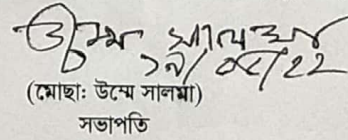 উম্মে সালমা
১৯/০৫/২২
(মোছাঃ উম্মে সালমা)
সভাপতি